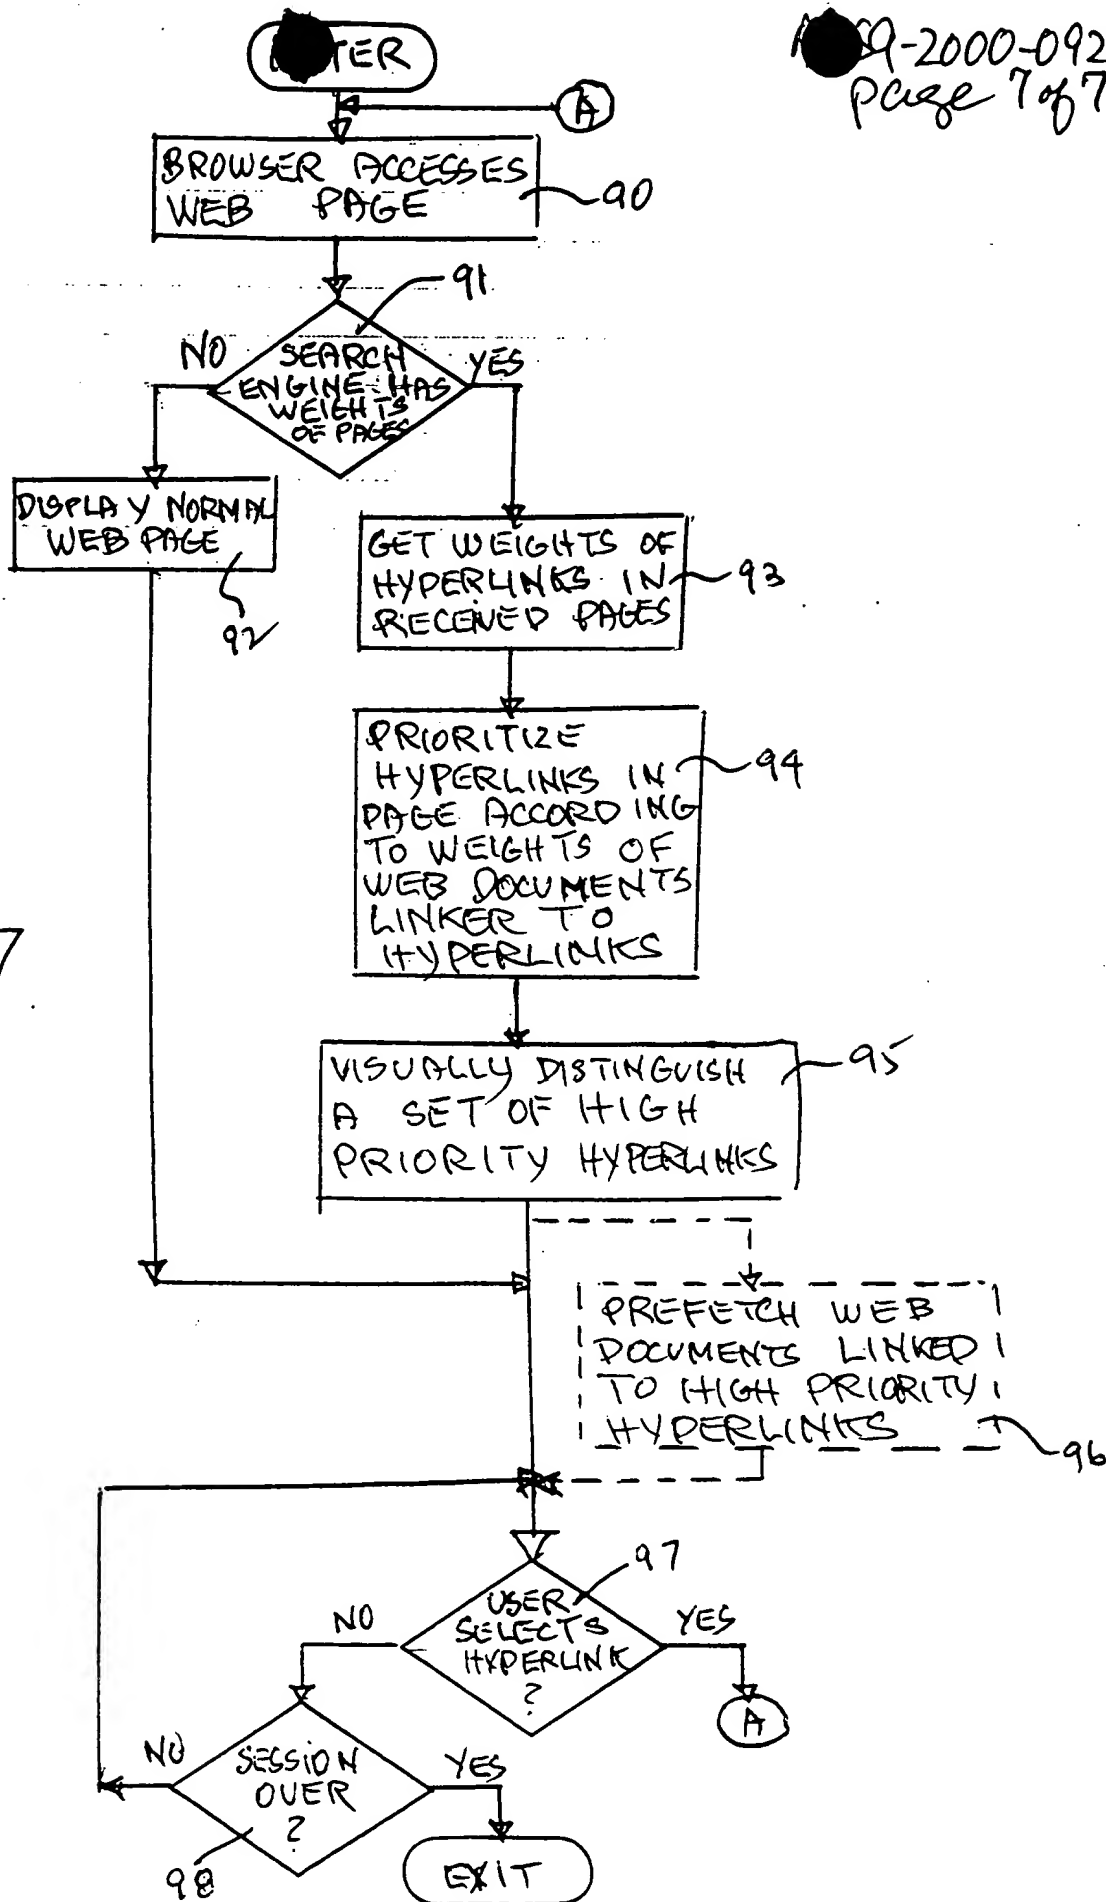 TER
9-2000-092
page 7 of 7
A
BROWSER ACCESSES
WEB PAGE
90
91
NO
YES
SEARCH
ENGINE HAS
WEIGHTS
OF PAGES
DISPLAY NORMAL
WEB PAGE
92
GET WEIGHTS OF
HYPERLINKS IN
RECEIVED PAGES
93
PRIORITIZE
HYPERLINKS IN
PAGE ACCORDING
TO WEIGHTS OF
WEB DOCUMENTS
LINKER TO
HYPERLINKS
94
7
VISUALLY DISTINGUISH
A SET OF HIGH
PRIORITY HYPERLINKS
95
PREFETCH WEB
DOCUMENTS LINKED
TO HIGH PRIORITY
HYPERLINKS
96
97
NO
YES
USER
SELECTS
HYPERLINK
?
A
NO
YES
SESSION
OVER
?
98
EXIT